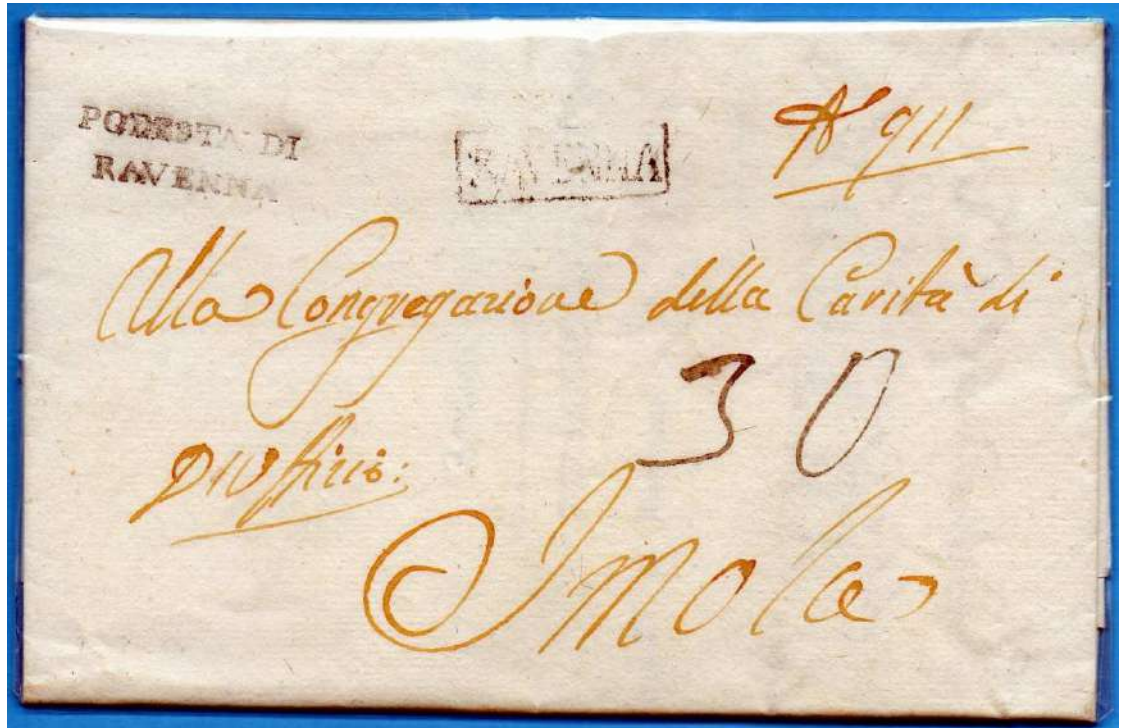 PODESTA' DI
RAVENNA
RAVENNA
N° 911
Alla Congregazione della Carità di
30
D'Ufficio:
Imola